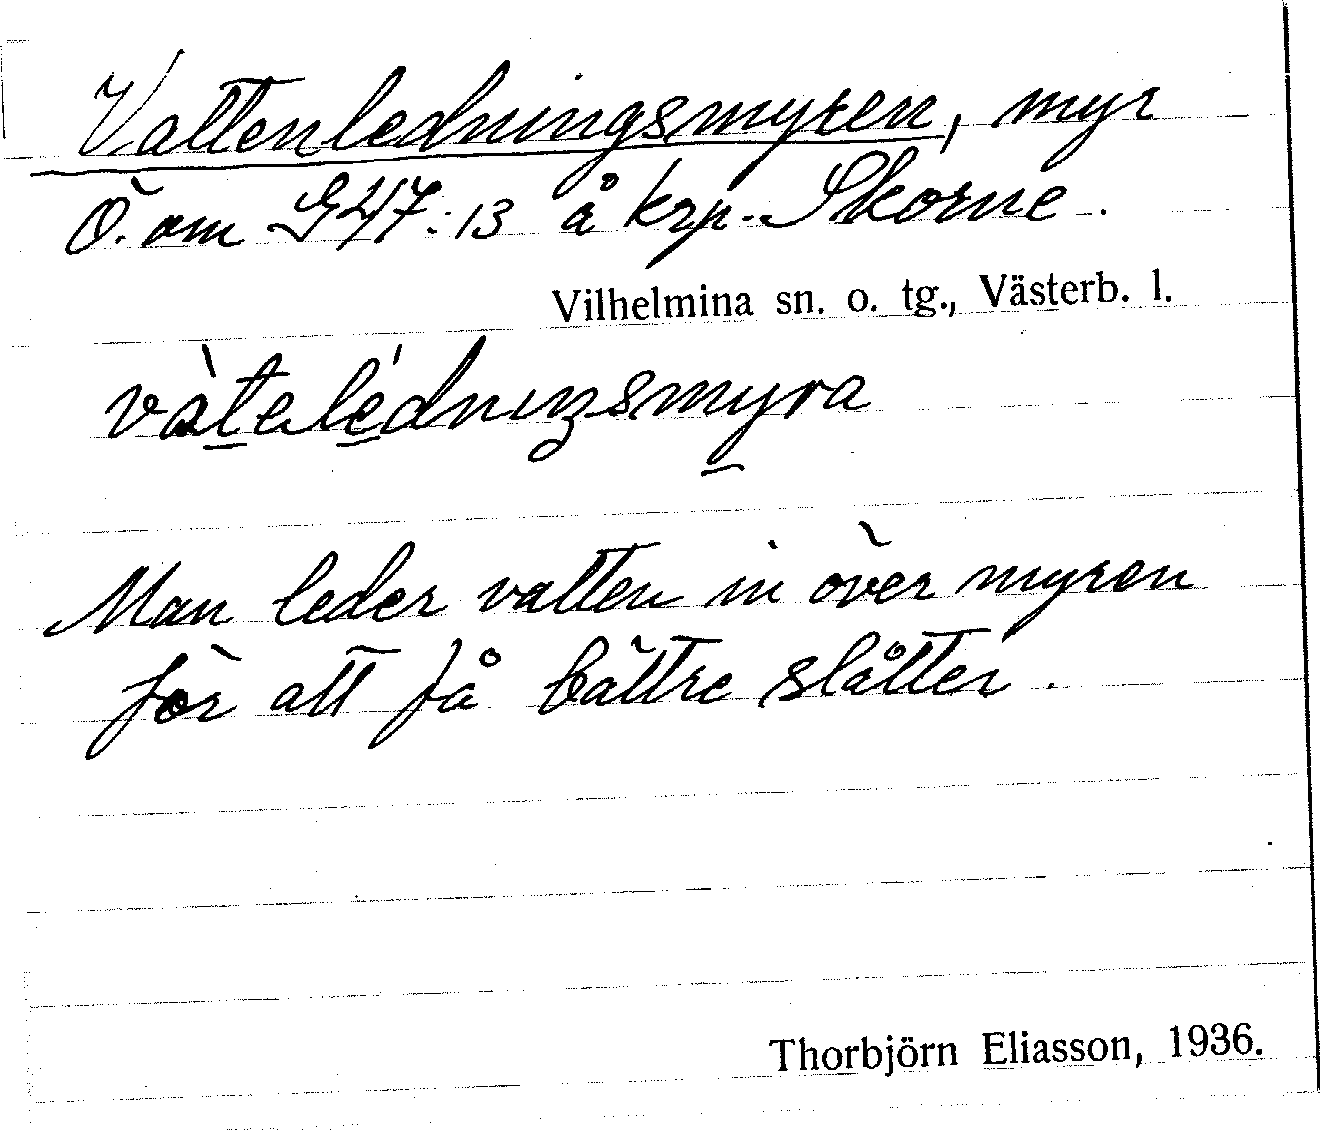 Vattenledningsmyren, myr
Ö. om G47:13 å krp. Skorne.
Vilhelmina sn. o. tg., Västerb. l.
vàtelédniŋsmyra
Man leder vatten in över myren
för att få bättre slåtter.
Thorbjörn Eliasson, 1936.